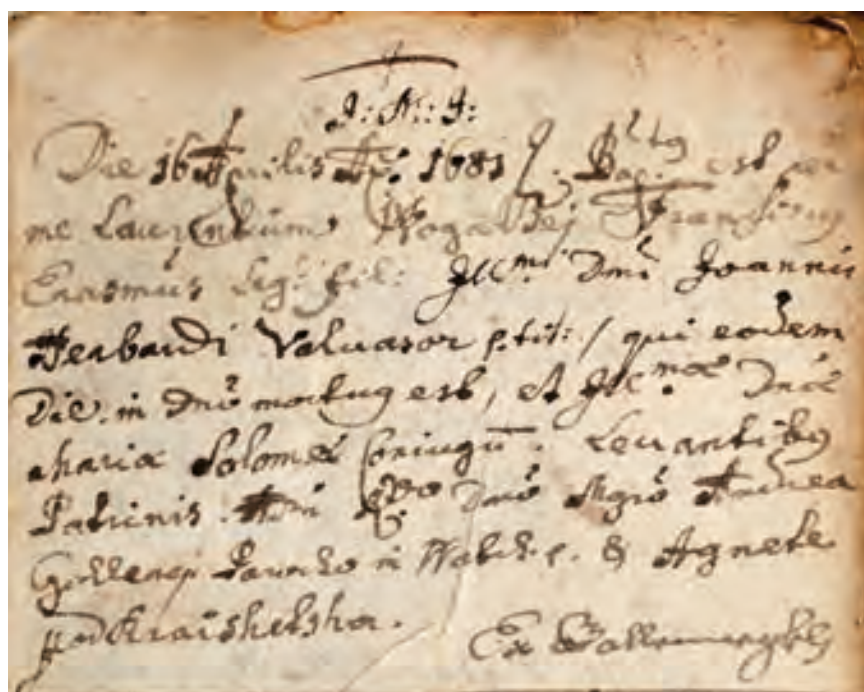 J: N: J:
Die 16 Aprilis Aō: 1681. Bap:tus est per
me Laurentium Wogathej Franciscus
Erasmus leg: fil: Ill:mi Dni Joannis
Herbardi Valuasor p: tit: / qui eodem
Die in dnō mortuus est, et Ill:mae Dnae
Mariae Solomeae Coniugū. Levantibus
Patrinis. Adm Rdo Dnō Mgrō Andrea
Parocho in & Agnete
Kraishetsha.
Ex